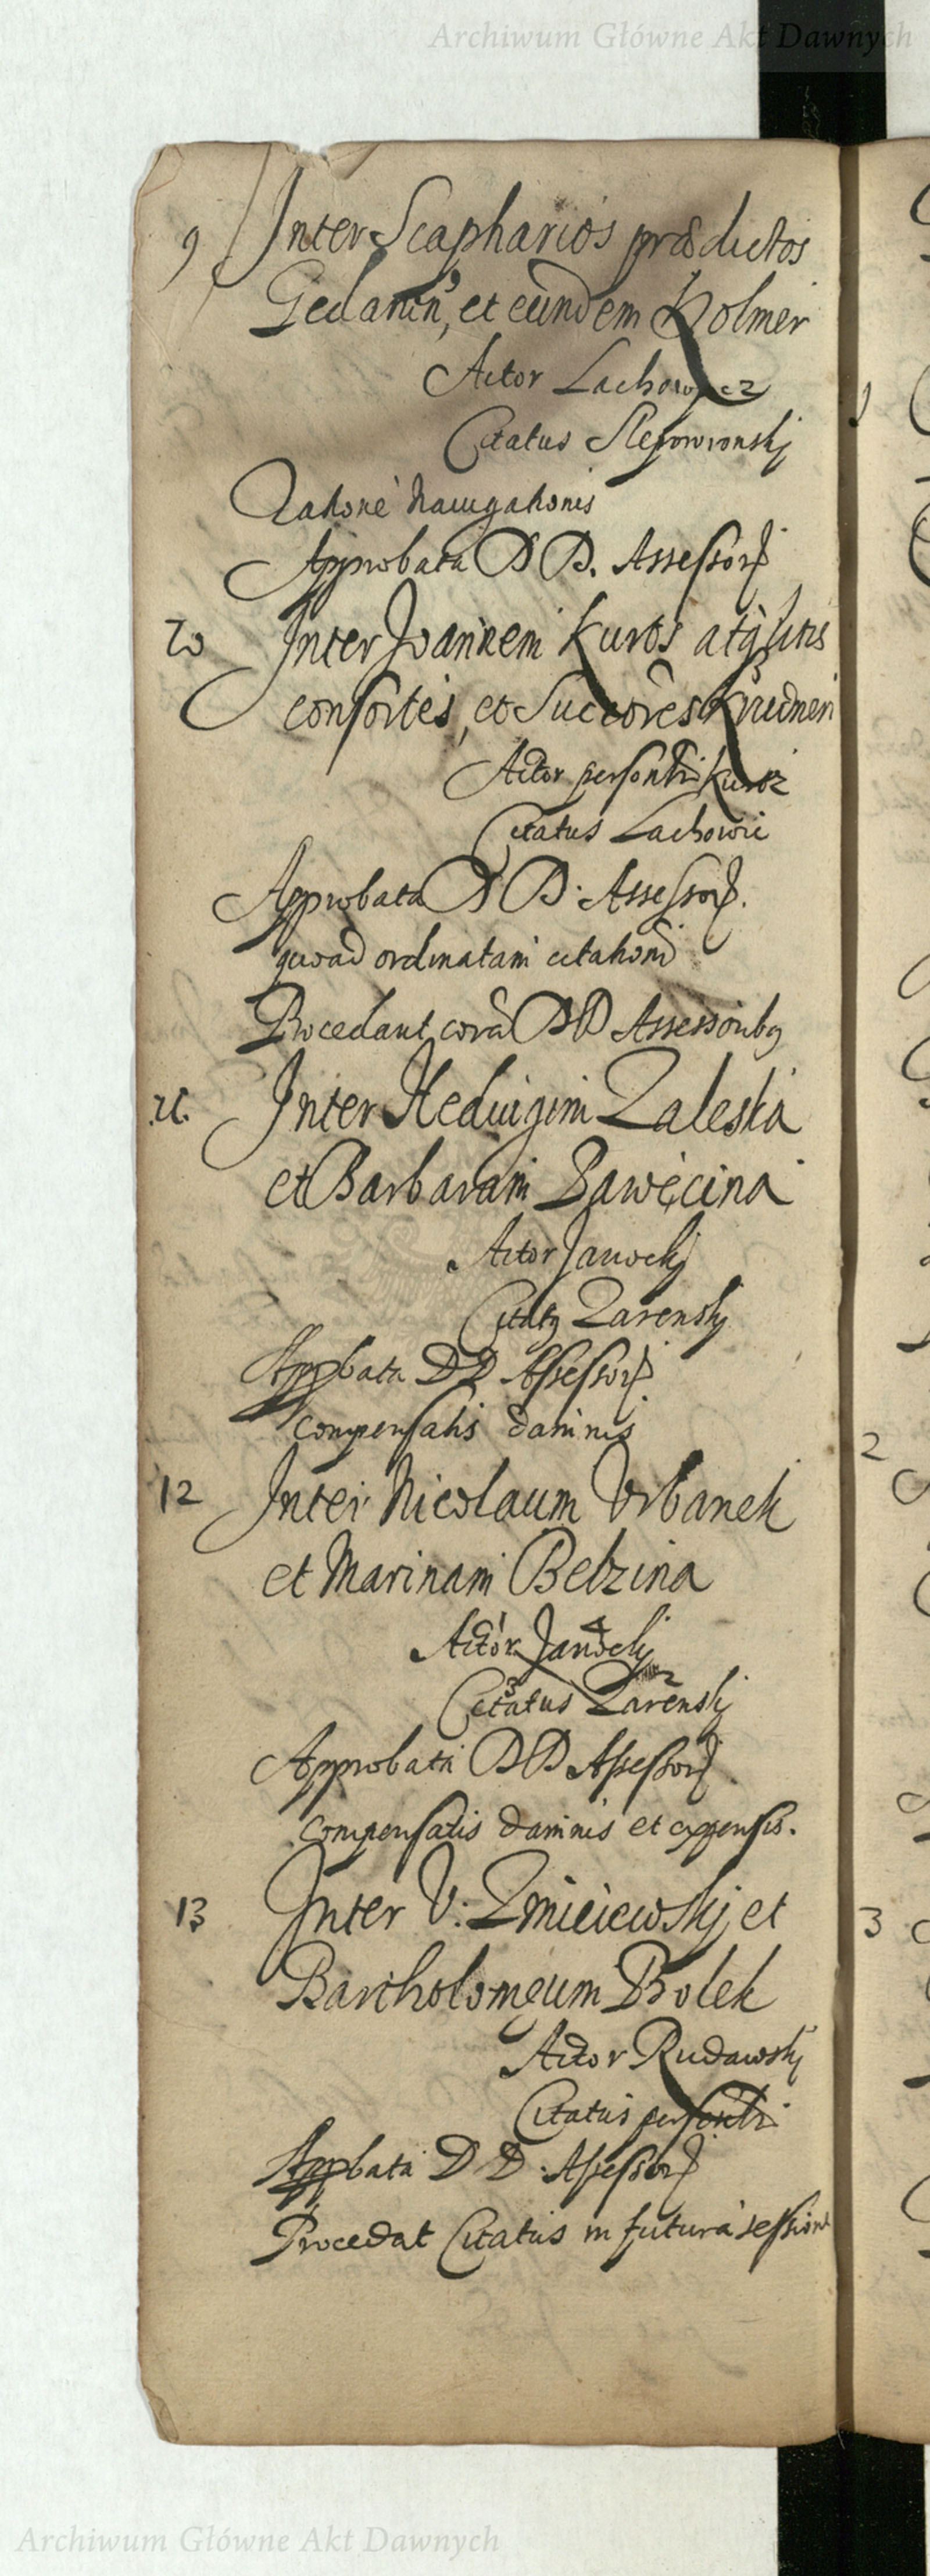 Archiwum Główne Akt Dawnych
9 Inter Scapharios prædictos
Gedanen, et eundem Holmer
Actor Lachowicz
Citatus Slepowronskj
Racione nauigationis
Approbata DD. Assessorũ
10 Inter Joannem Kuros
consortes, et Succores Krudneri
Actor personlr Kurosz
Citatus Lachowic
Approbata DD. Assessorũ.
quoad ordinatam citationẽ
Procedant corã DD Assessoribq
11. Inter Heduigim Zaleska
et Barbaram Bawęcina
Actor Janockj
Citatq Zarenskj
Appbata DD Assessorũ
compensatis damnis
12 Inter Nicolaum Vrbanek
et Marinam Belzina
Actor Janockj
Citatus Zarenskj
Approbata DD Assessorũ
compensatis damnis et expensis.
13 Inter V. Zmiiewskj et
Bartholomęum Bolek
Actor Rudawskj
Citatus personlr
Appbata DD. Assessorũ
Procedat Citatus in futura sessione
1
2
3
Archiwum Główne Akt Dawnych